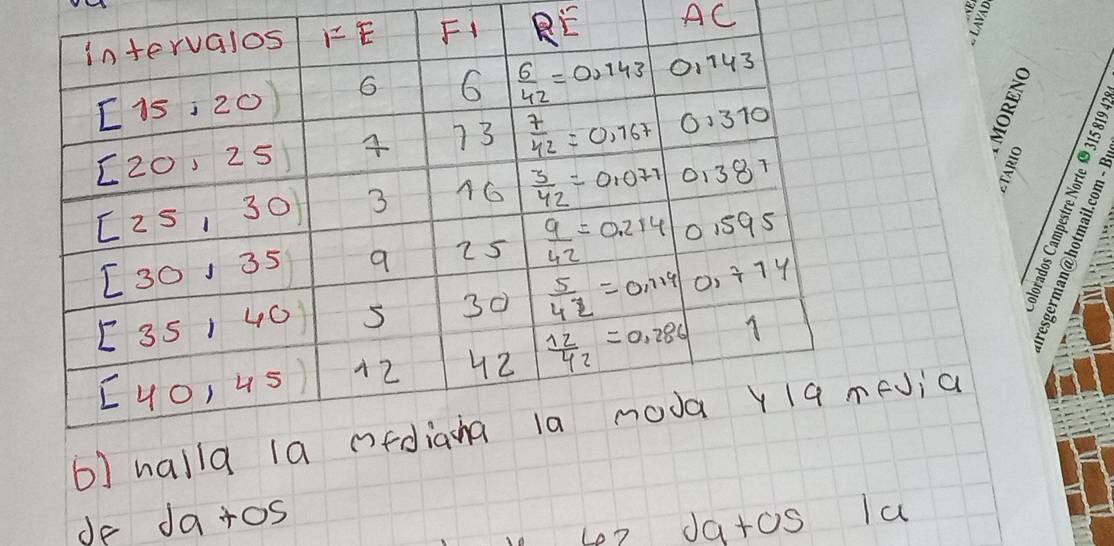 intervalos FE FI RE AC
[15 ; 20) 6 6 6/42 = 0,143 0,143
[20, 25) 7 13 7/42 = 0,167 0,310
[25, 30) 3 16 3/42 = 0,071 0,381
[30, 35) 9 25 9/42 = 0,214 0,595
[35, 40) 5 30 5/42 = 0,119 0,714
[40, 45) 12 42 12/42 = 0,286 1
b) halla la mediana la moda y la media
de datos
datos la
MORENO
Colorados Campestre Norte 315 819 428
airesgerman@hotmail.com - Bu